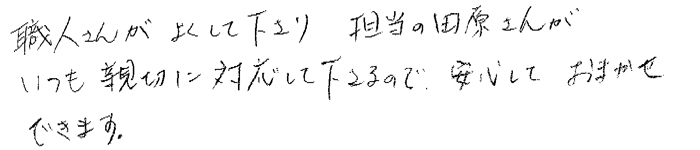 職人さんが よくして下さり 担当の田原さんが
いつも親切に対応して下さるので、安心して おまかせ
できます。